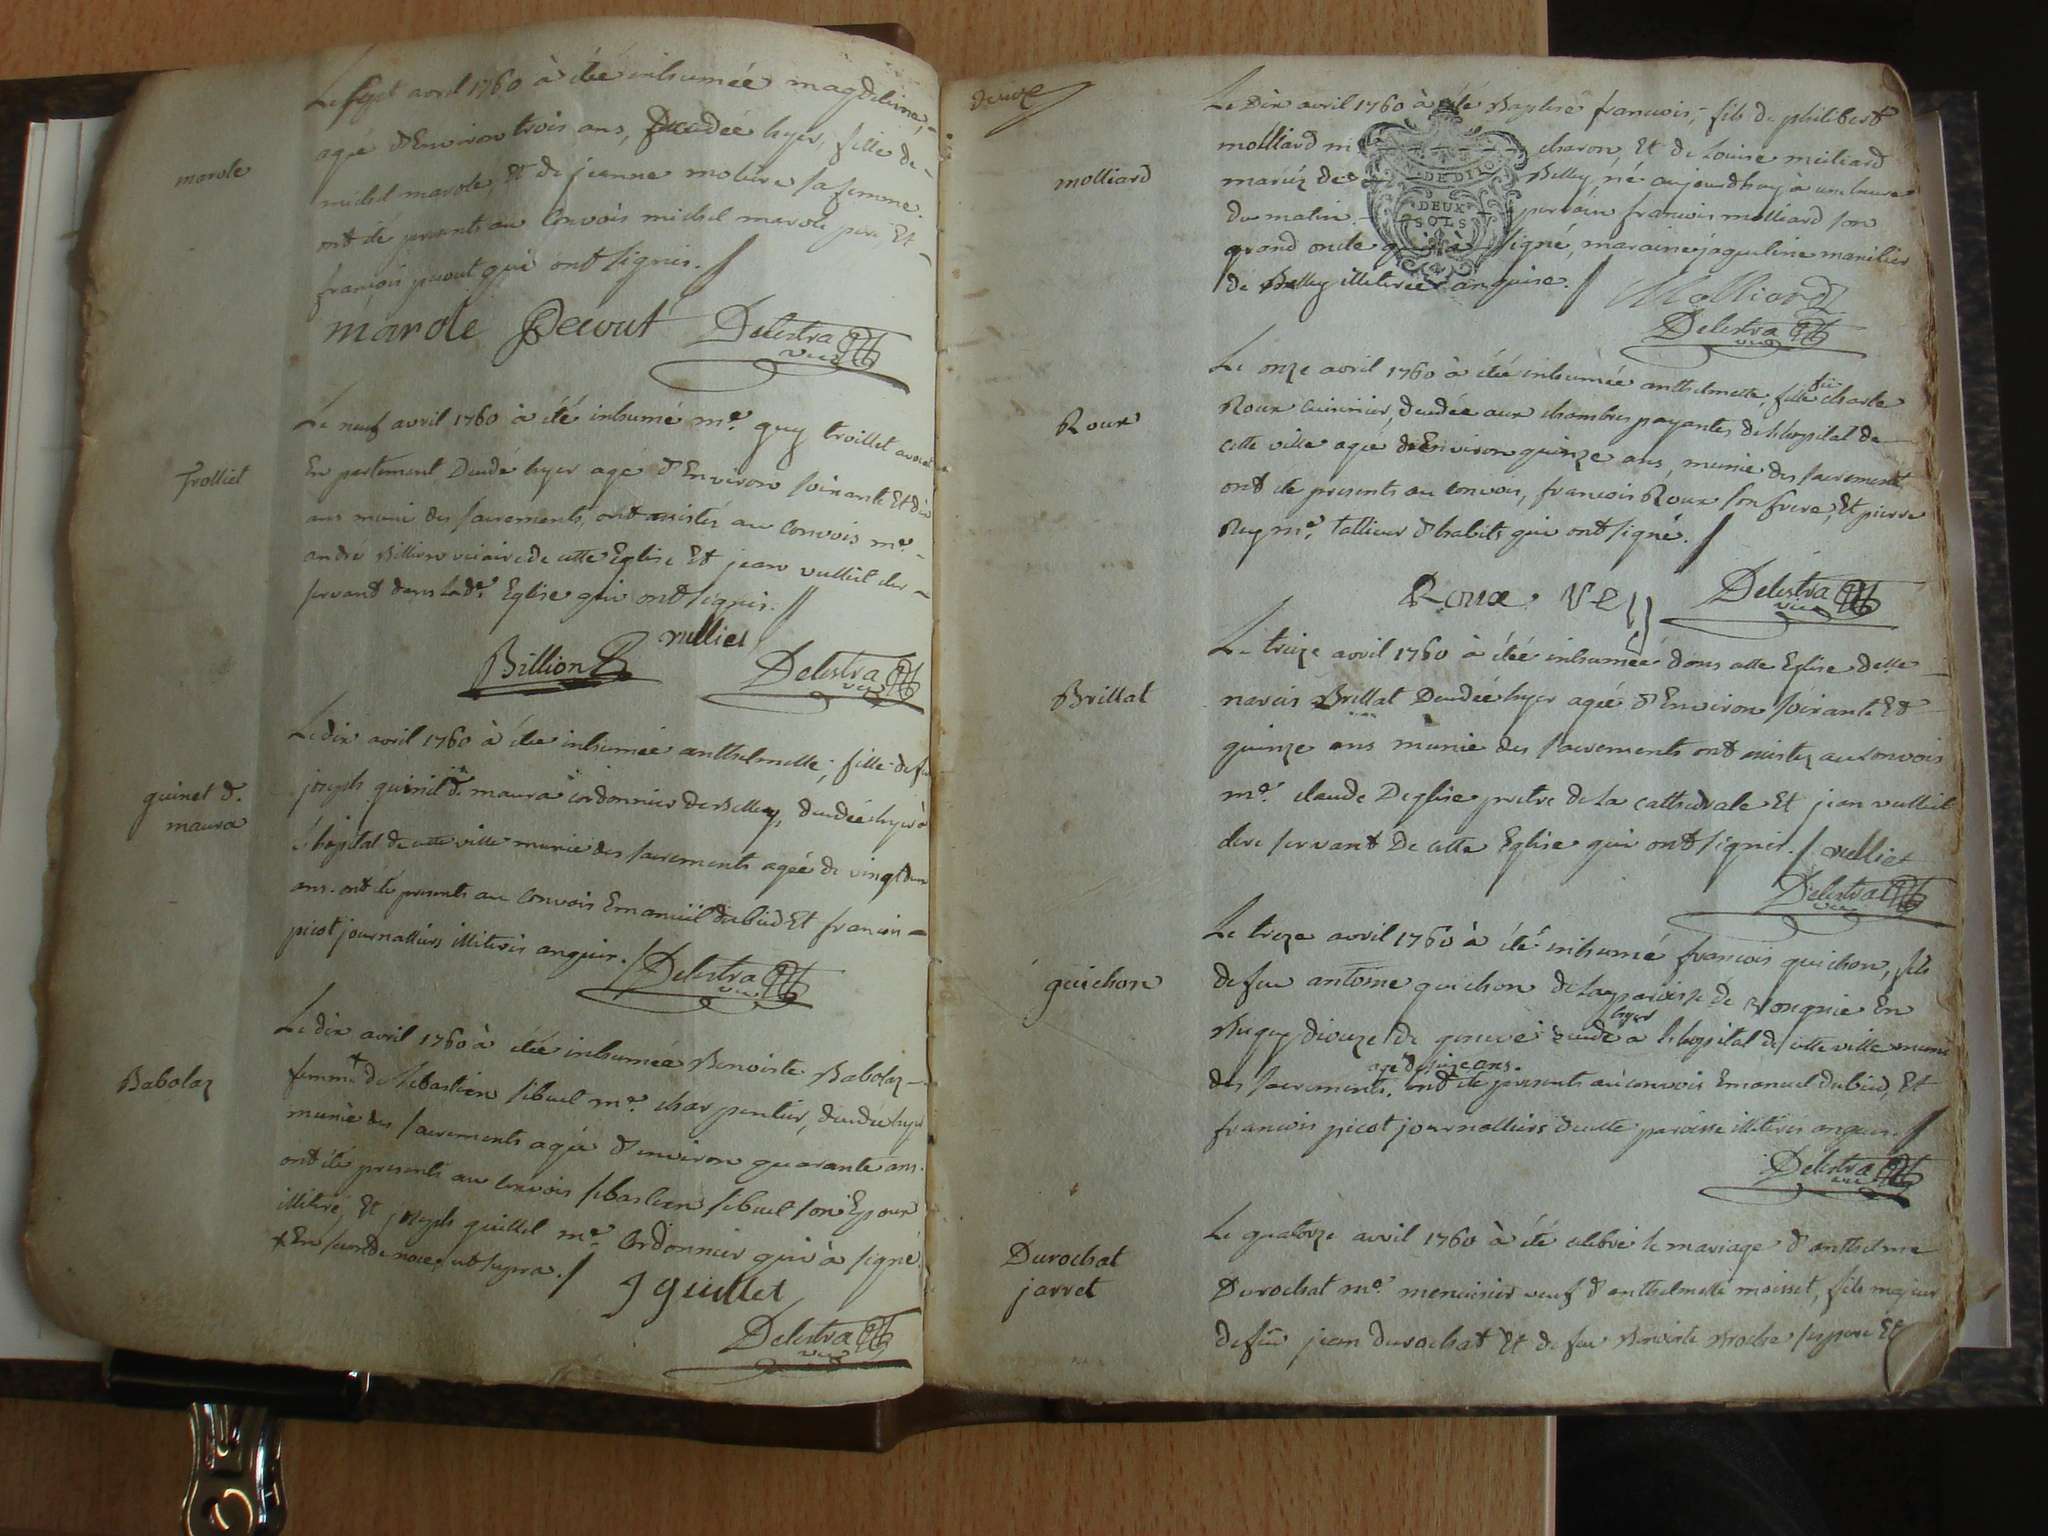 marole
Le sept avril 1760 à étée inhumée magdelaine,
agée d'Environ trois ans, decedée hyer, fille de
michel marole, et de jeanne moliere sa femme.
ont été presents au Convois michel marole pere, Et
françois pecout qui ont signés.
marole Pecout Delestra vic
Trolliet
Le neuf avril 1760 à été inhumé me. guy trolliet avocat
En parlement, Decedé hyer agé d'Environ soixante Et dix
ans muni des sacrements, ont assistés au Convois me.
andré Billion vicaire de cette Eglise Et jean vulliet cler
servant dans lade. Eglise qui ont signés.
vulliet
Billion Delestra vic
guinet d.
maura
Le dix avril 1760 à étée inhumée anthelmette, fille de feu
joseph guinet de maura cordonnier de Belley, decedée hyer à
l'hopital de cette ville munie des sacrements agée de vingt deux
ans. ont été presents au Convois Emanuel dubied Et francois
picot journalliers illiterés enquis. Delestra vic
Babolaz
Le dix avril 1760 à étée inhumée Benoiste Babolaz
femme + de sebastien sibuel me. charpentier, decedée hyer
munie des sacrements agée d'environ quarante ans.
ont été presents au convois sebastien sibuel son Epoux
illiteré, Et joseph guillet me. Cordonnier qui à signé.
+ En seconde noces ut supra. J guillet
Delestra vic
deuxe
molliard
Le Dix avril 1760 à été Baptisé francois, fils de philibert
molliard charon, Et de Louise milliard
mariéz de Belley, né aujourdhuy à une heure
du matin parrain francois molliard son
grand oncle signé, maraine jaqueline
de Belley illiterée enquise. Molliard
DE DIJON
DEUX
SOLS
Delestra vic
Roux
Le onze avril 1760 à étée inhumée anthelmette, fille de charle
Roux cuisinier, decedée aux chambres payantes de l'hopital de
cette ville agée d'Environ quinze ans, munie des sacrements
ont été presents au convois, francois Roux son frere, Et pierre
Rey me. tallieur d'habits qui ont signé.
Roux Delestra vic
Brillat
Le treize avril 1760 à étée inhumée dans cette Eglise delle
narcis Brillat Decedée hyer agée d'Environ soixante Et
quinze ans munie des sacrements ont assistez au convois
me. claude Deglise pretre de la cathedrale Et jean vulliet
clerc servant De cette Eglise qui ont signés. vulliet
Delestra vic
guichon
Le treze avril 1760 à été inhumé francois guichon, fils
de feu antoine guichon de la paroisse de En
Bugey, dioceze de geneve decedé hyer a l'hopital de cette ville muni
des sacrements. agé de seize ans. ont été presents au convois Emanuel dubied, Et
francois picot journalliers de cette paroisse illiterés enquis.
Delestra vic
Durochat
jarret
Le quatorze avril 1760 à été celebré le mariage d'anthelme
Durochat me. menuisier veuf d'anthelmette moisset, fils majeur
de feu jean durochat Et de feu Benoiste Broche ses pere Et